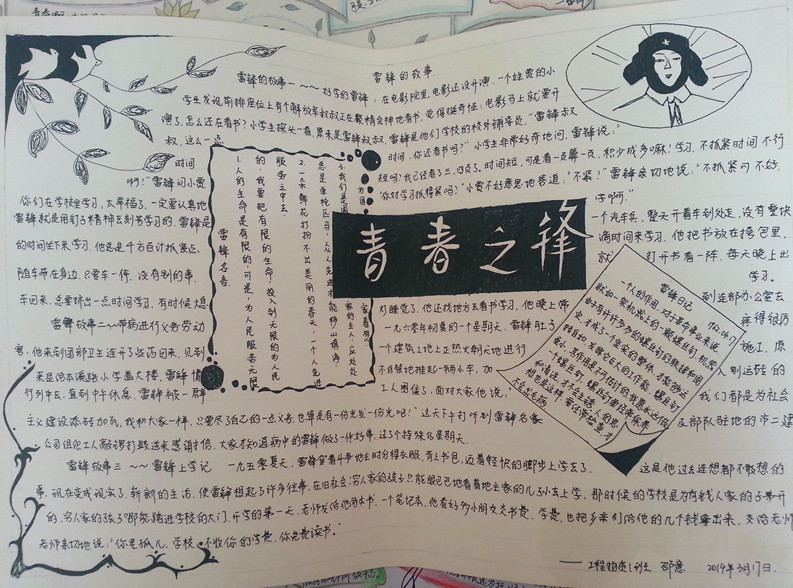 雷锋的故事
雷锋的故事一~~~好学的雷锋：在电影院里，电影还没开演，一个姓贾的小
学生发现前排座位上有个解放军叔叔正在聚精会神地看书，觉得挺奇怪：电影马上就要开
演了，怎么还在看书？小学生探头一看，原来是雷锋叔叔，雷锋是他们学校的校外辅导员。"雷锋叔
叔，这么一点
时间
时间，你还看书吗？"小学生非常好奇地问。雷锋说："
短吗？我已经看了三、四页了。时间短，可是看一页算一页，积少成多嘛！学习，不抓紧时间不行
啊！"雷锋问小贾
"你对学习抓得紧吗？"小贾不好意思地答道："不紧！"雷锋亲切地说："不抓紧可不好，
你们在学校里学习，太幸福了，一定要认真地
学啊。"
雷锋就是用钉子精神去刻苦学习的，雷锋是
一个汽车兵，整天开着车到处走，没有整块
的时间坐下来学习，他总是千方百计抓紧点
滴时间来学习，他把书放在挎包里，
随车带在身边，只要车一停，没有别的事，
就
打开书看一阵，每天晚上出
车回来，总要挤出一点时间学习，有时候熄
学习。
灯睡觉了，他还找地方去看书学习，他晚上常
到连部办公室去
雷锋故事二~~带病进行义务劳动
一九六零年初夏的一个星期天，雷锋肚子
疼得很厉
害，他来到团部卫生连开了些药回来，见到
一个建筑工地上正热火朝天地进行
施工，原
来是给本溪路小学盖大楼，雷锋情
不自禁地推起一辆小车，加
入到运砖的
行列中去，直到中午休息，雷锋被一群
工人围住了，面对大家他说：
"我们都是为社会
主义建设添砖加瓦，我和大家一样，只要尽了自己的一点义务，也算是有一份光发一份光吧！"这天下午打听到雷锋名字
及部队驻地的市二建
公司组织工人敲锣打鼓送来感谢信，大家才知道病中的雷锋做了一件好事，过了个特殊化星期天。
雷锋故事三~~雷锋上学记
一九五零夏天，雷锋穿着斗争地主时分得衣服，背上书包，迈着轻快的脚步上学去了。
这是他过去连想都不敢想的
事，现在变成现实了，崭新的生活，使雷锋想起了许多往事，在旧社会，穷人家的孩子只能眼巴巴地看着地主家的儿子去上学，那时候的学校是为有钱人家的子弟开
的，穷人家的孩子哪能踏进学校的大门，开学的第一天，老师发给他两本书，一个笔记本，他看好多小朋友交书费、学费，也把乡亲们给他的几个钱拿出来，交给老师
老师亲切地说："你是孤儿，学校不收你的学费，你免费读书。"
青春之锋
雷锋名言
1.人的生命是有限的可是，为人民服务无限
的，我要把有限的生命，投入到无限的为人民
服务之中去
2.一朵鲜花打扮不出美丽的春天，一个人先进
总是单枪匹马，众人先进才能移山填海。
雷锋日记
1962.4.17
一个人的作用，对于革命事业来说，
就如一架机器上的一颗螺丝钉，机器
由于有许许多多的螺丝钉的联接和固
定，才成了一个坚实的整体，才能够运
转自如，发挥它巨大的工作能，螺丝钉
虽小，其作用是不可估计的，我愿永远做
一个螺丝钉，螺丝钉要经常保养
和清洗，才不会生锈，人的思
想也是这样，要经常检查才
不会出毛病
2014年3月17日